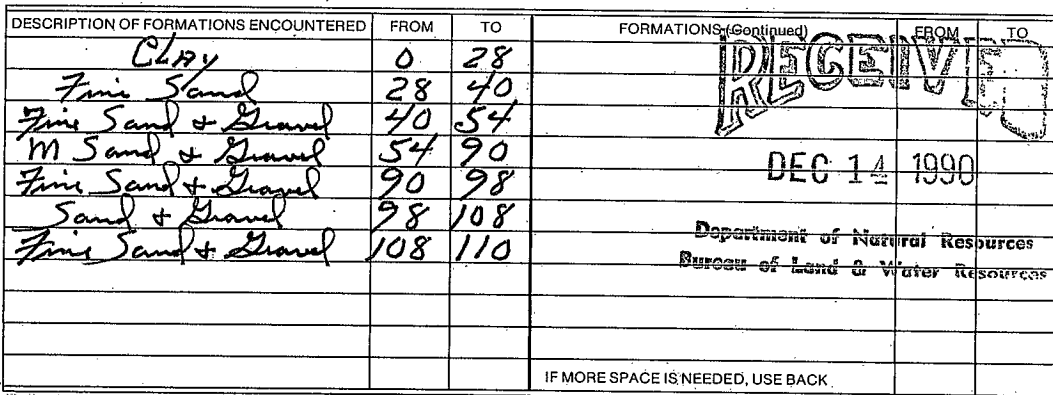 DESCRIPTION OF FORMATIONS ENCOUNTERED FROM TO
CLAY 0 28
Fine Sand 28 40
Fine Sand & Gravel 40 54
M Sand & Gravel 54 90
Fine Sand & Gravel 90 98
Sand & Gravel 98 108
Fine Sand & Gravel 108 110
FORMATIONS (Continued) FROM TO
RECEIVED
DEC 14 1990
Department of Natural Resources
Bureau of Land & Water Resources
IF MORE SPACE IS NEEDED, USE BACK